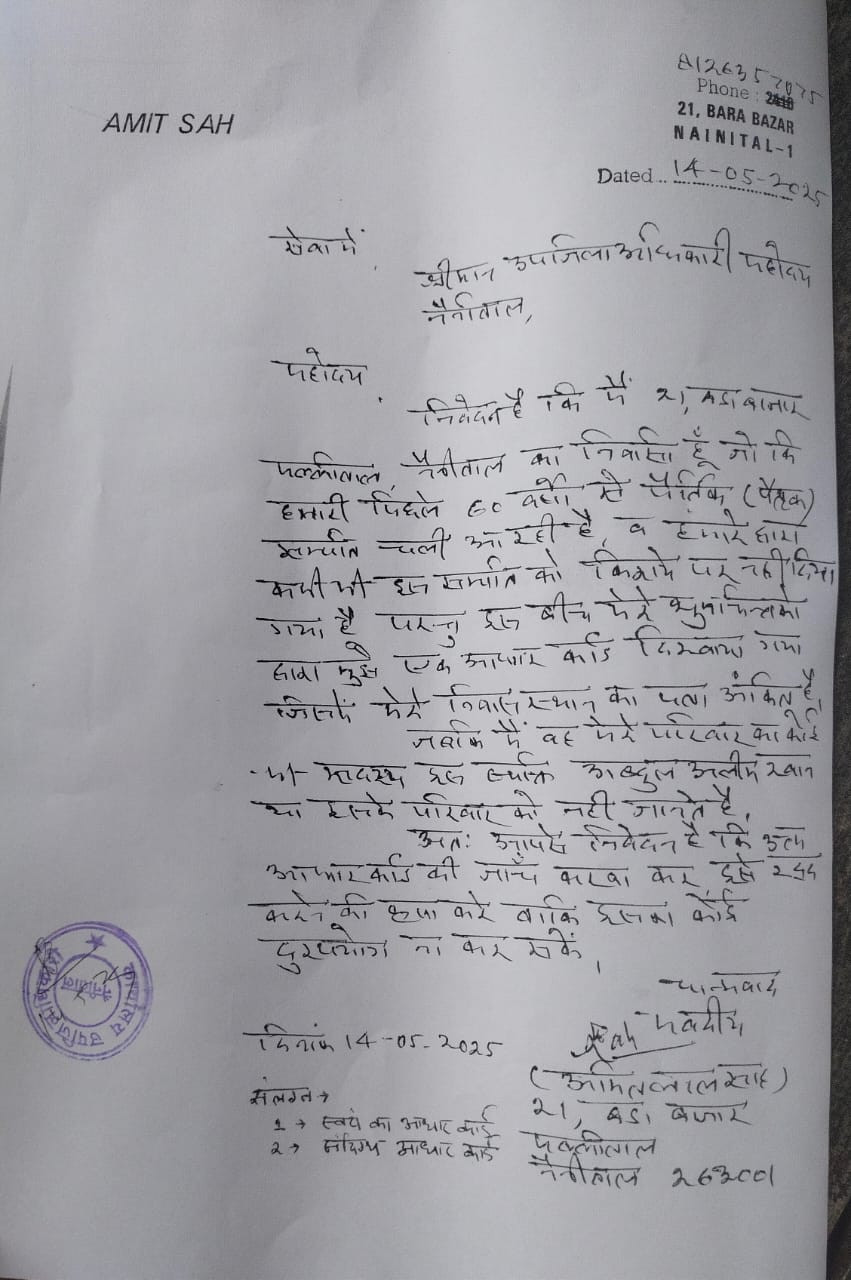 8126357075
Phone :
AMIT SAH
21, BARA BAZAR
NAINITAL-1
Dated.. 14-05-2025
सेवा में,
श्रीमान उपजिलाअधिकारी महोदय
नैनीताल,
महोदय,
निवेदन है कि मैं 21, बड़ा बाजार
मल्लीताल, नैनीताल का निवासी हूँ जो कि
हमारी पिछले 60 वर्षो से पैर्तिक (पैतृक)
सम्पति चली आ रही है, व हमारे द्वारा
कभी भी इस सम्पति को किराये पर नही दिया
गया है परन्तु इस बीच मेरे शुभचिन्तको
द्वारा मुझे एक आधार कार्ड दिखाया गया
जिसमें मेरे निवास स्थान का पता अंकित है,
जबकि मैं वह मेरे परिवार का कोई
भी सदस्य इस व्यक्ति अब्दुल अलीम खान
या इसके परिवार को नही जानते है,
अतः आपसे निवेदन है कि उक्त
आधार कार्ड की जाँच करवा कर इसे रद्द
करने की कृपा करे ताकि इसका कोई
दुरपयोग ना कर सकें,
धन्यवाद
भवदीय
Sah
दिनांक 14-05-2025
(अमित लाल साह)
संलग्न →
21, बड़ा बाजार
1 → स्वयं का आधार कार्ड
मल्लीताल
2 → संदिग्ध आधार कार्ड
नैनीताल 263001
कार्यालय उपजिलाधिकारी
नैनीताल